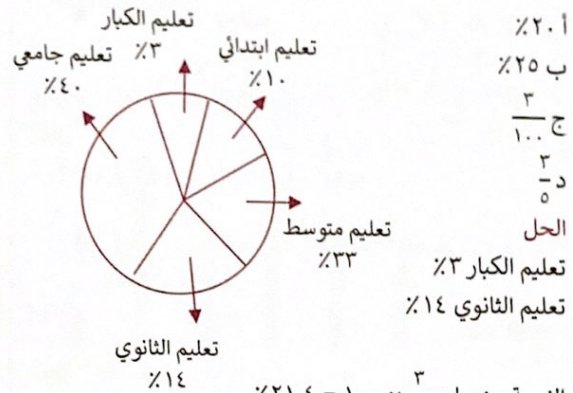 أ. ٢٠٪
ب ٢٥٪
ج ٣/١٠٠
د ٣/٥
الحل
تعليم الكبار ٣٪
تعليم الثانوي ١٤٪
تعليم الكبار
٣٪
تعليم ابتدائي
١٠٪
تعليم جامعي
٤٠٪
تعليم متوسط
٣٣٪
تعليم الثانوي
١٤٪